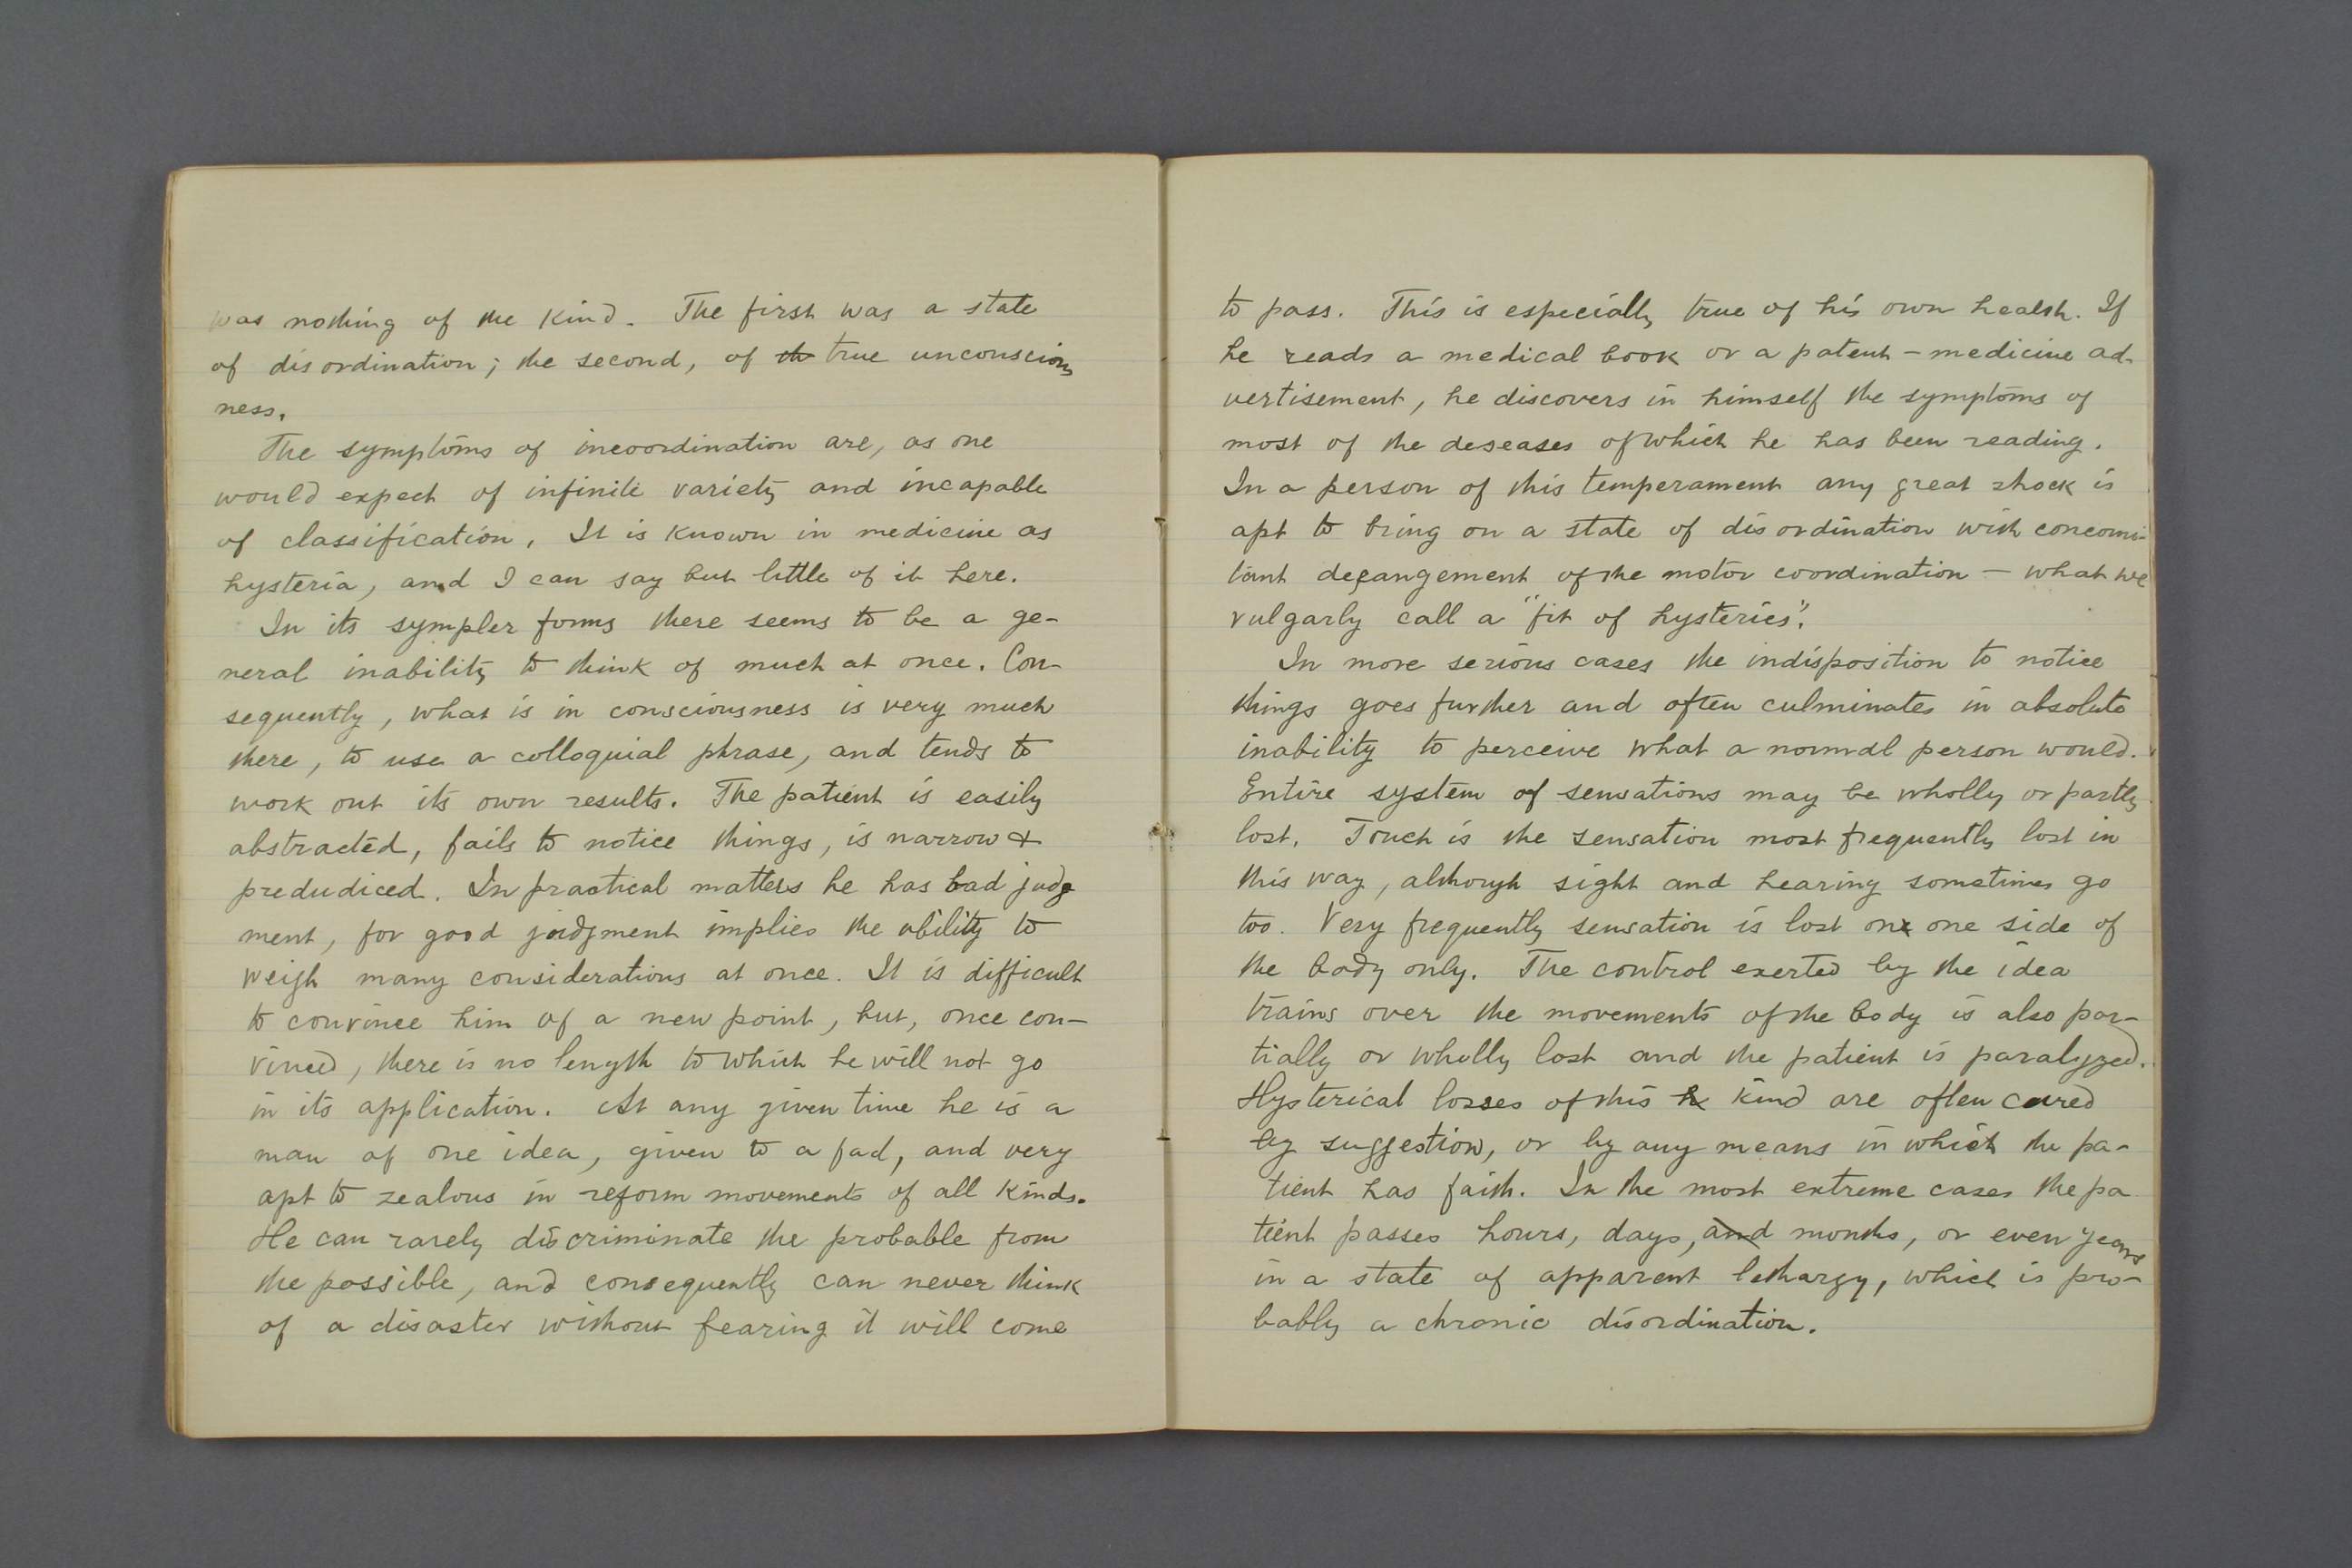 was nothing of the kind. The first was a state
of disordination; the second, of th true unconscious
ness.
The symptoms of incoordination are, as one
would expect of infinite variety and incapable
of classification. It is known in medicine as
hysteria, and I can say but little of it here.
In its sympler forms there seems to be a ge-
neral inability to think of much at once. Con-
sequently, what is in consciousness is very much
there, to use a colloquial phrase, and tends to
work out its own results. The patient is easily
abstracted, fails to notice things, is narrow &
predudiced. In practical matters he has bad judg
ment, for good judgment implies the ability to
weigh many considerations at once. It is difficult
to convince him of a new point, but, once con-
vinced, there is no length to which he will not go
in its application. At any given time he is a
man of one idea, given to a fad, and very
apt to zealous in reform movements of all kinds.
He can rarely discriminate the probable from
the possible, and consequently can never think
of a disaster without fearing it will come
to pass. This is especially true of his own health. If
he reads a medical book or a patent-medicine ad-
vertisement, he discovers in himself the symptoms of
most of the deseases of which he has been reading.
In a person of this temperament any great shock is
apt to bring on a state of disordination with concomi-
tant derangement of the motor coordination – what we
vulgarly call a "fit of hysterics".
In more serious cases the indisposition to notice
things goes further and often culminates in absolute
inability to perceive what a normal person would.
Entire system of sensations may be wholly or partly
lost. Touch is the sensation most frequently lost in
this way, although sight and hearing sometimes go
too. Very frequently sensation is lost on one side of
the body only. The control exerted by the idea
trains over the movements of the body is also par-
tially or wholly lost and the patient is paralyzed.
Hysterical losses of this h kind are often cured
by suggestion, or by any means in which the pa-
tient has faith. In the most extreme cases the pa
tient passes hours, days, and months, or even years
in a state of apparent lethargy, which is pro-
bably a chronic disordination.